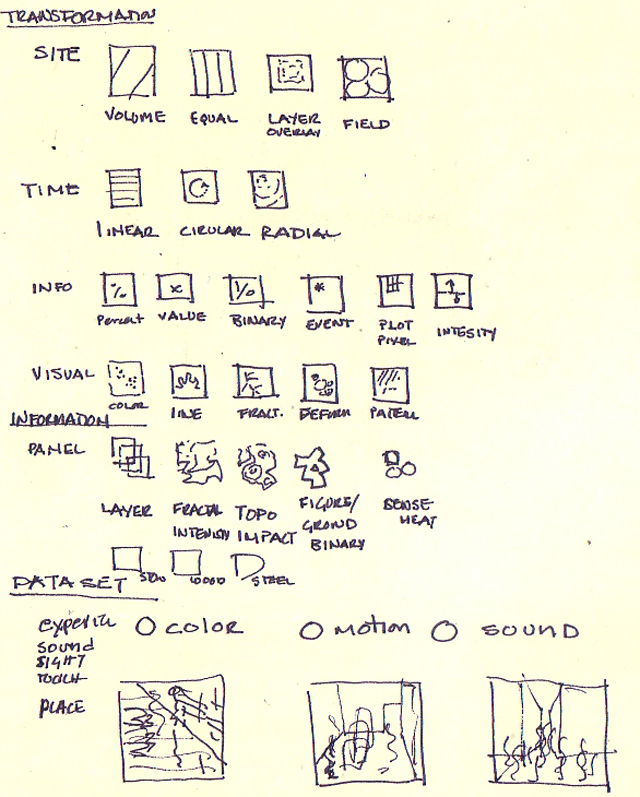 TRANSFORMATION
SITE
VOLUME EQUAL LAYER OVERLAY FIELD
TIME
LINEAR CIRULAR RADIAL
INFO
% x 1/0 *
Percent VALUE BINARY EVENT PLOT PIXEL INTESITY
VISUAL
COLOR LINE FRACT. DEFORM
INFORMATION
PANEL
LAYER FRACTAL INTENSITY TOPO IMPACT FIGURE/ GROUND BINARY SENSE HEAT
WOOD STEEL
DATA SET
COLOR MOTION SOUND
SOUND
SIGHT
TOUCH
PLACE